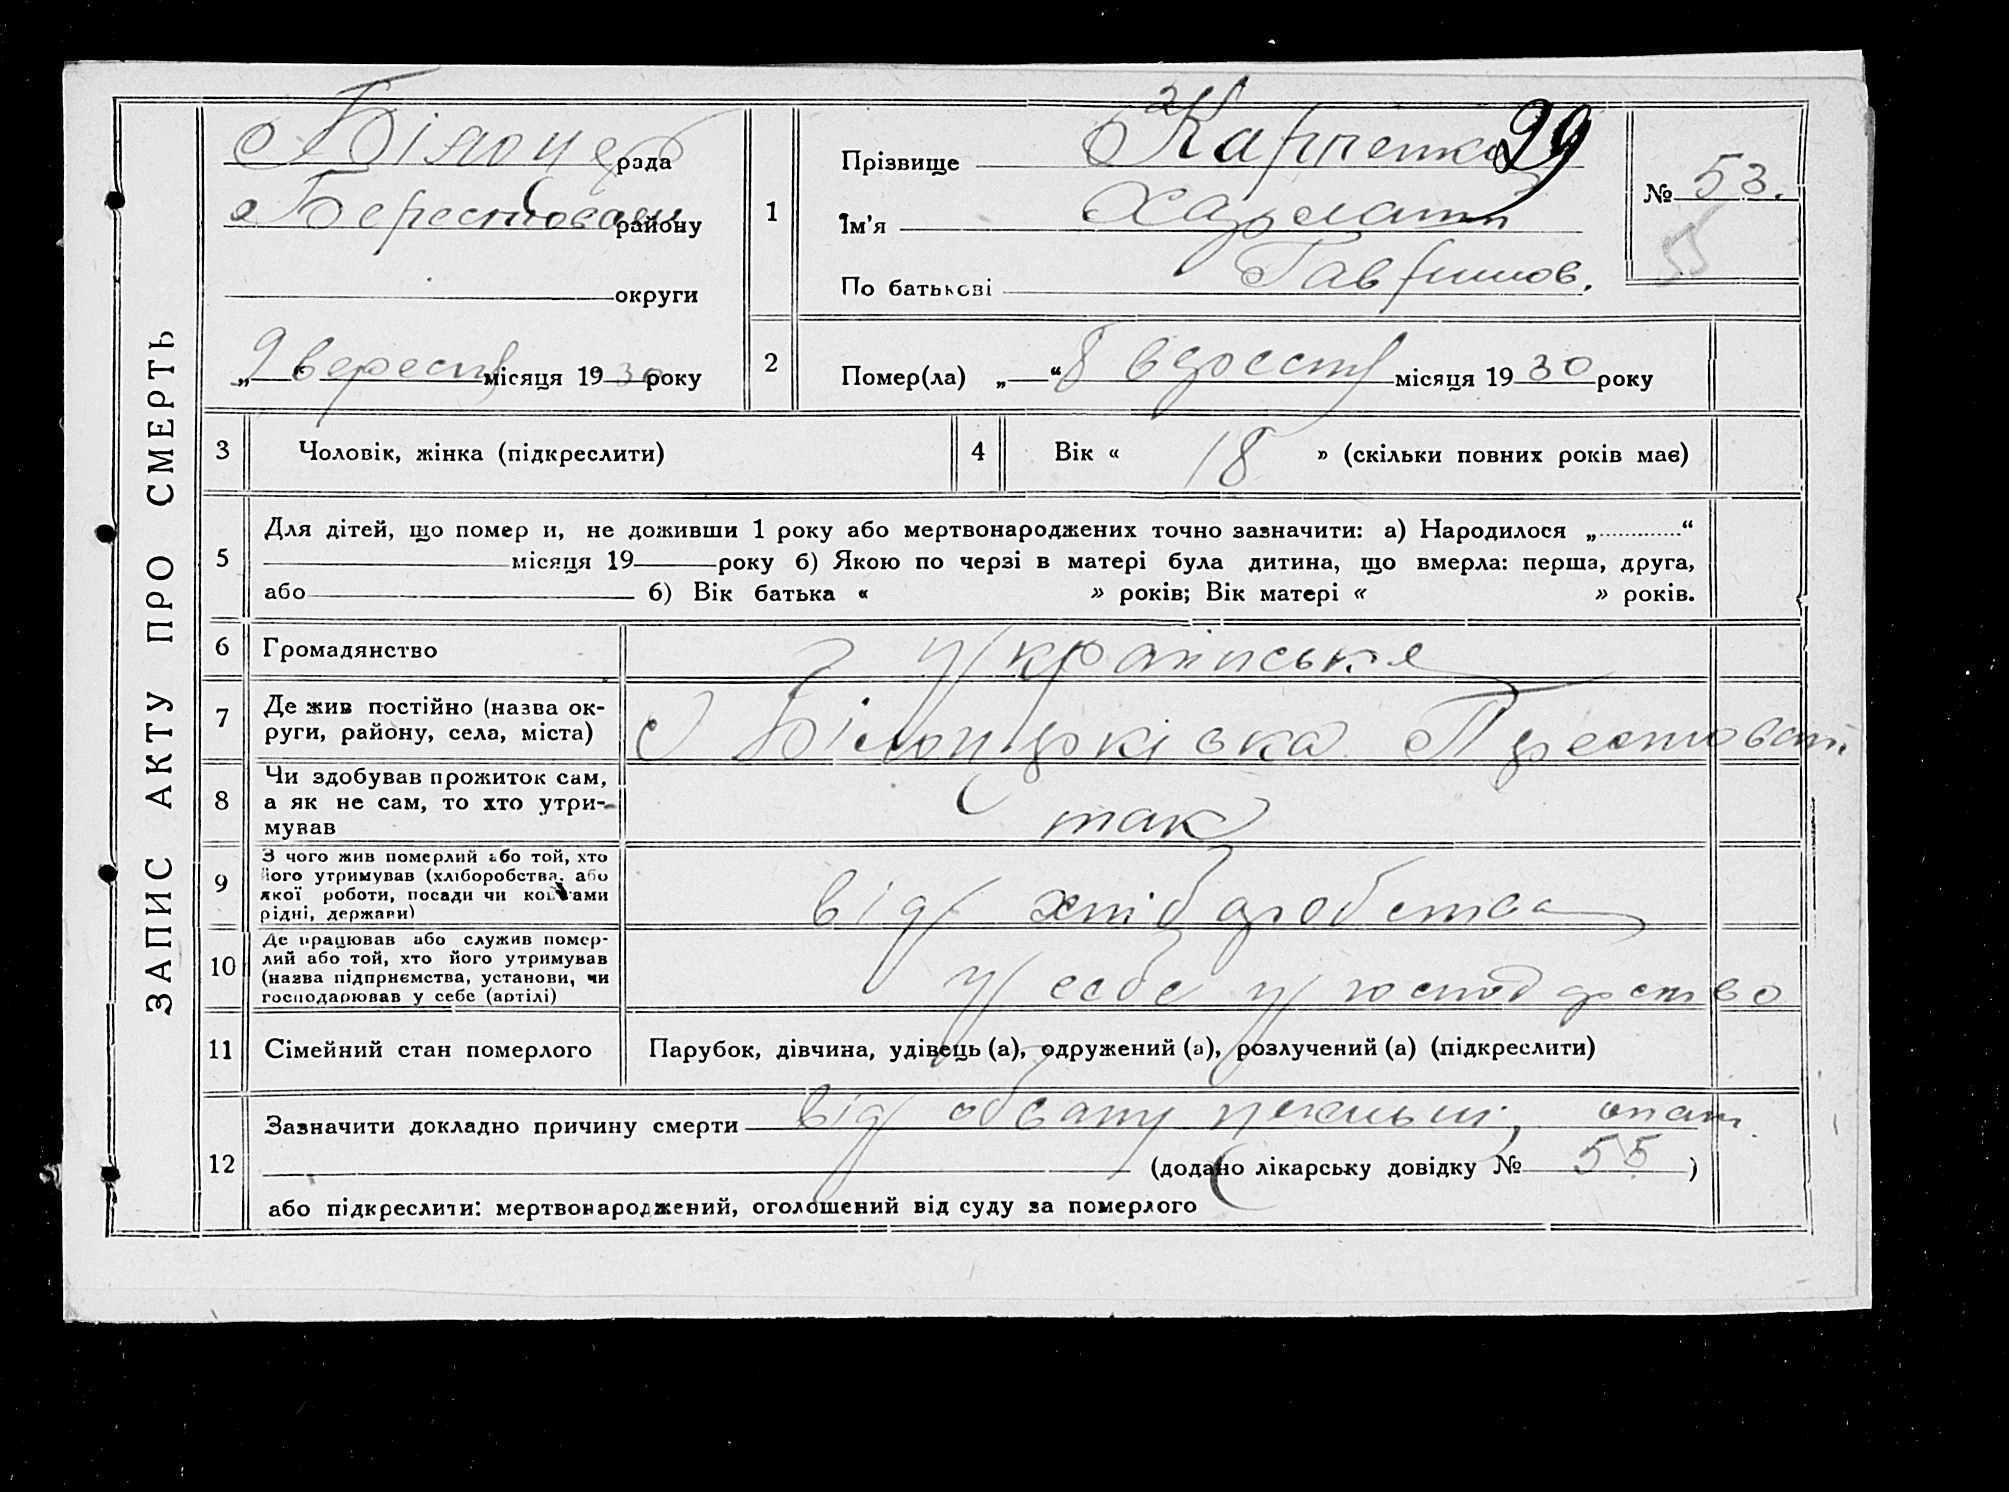 ЗАПИС АКТУ ПРО СМЕРТЬ
Білоцер рада
Берестовець району
округи
„ 9 “ вересня місяця 1930 року
1
Прізвище Карпенко
29
Ім'я Харлатп
По батькові Гаврилов.
№ 53.
55
2
Помер(ла) „ “ 8 вересня місяця 1930 року
3 Чоловік, жінка (підкреслити)
4 Вік « 18 » (скільки повних років має)
5
Для дітей, що помер и, не доживши 1 року або мертвонароджених точно зазначити: а) Народилося „ “
місяця 19 року б) Якою по черзі в матері була дитина, що вмерла: перша, друга,
або б) Вік батька « » років; Вік матері « » років.
6 Громадянство українське
7 Де жив постійно (назва ок-
руги, району, села, міста) Білоцерківка
8 Чи здобував прожиток сам,
а як не сам, то хто утри-
мував так
9 З чого жив померлий або той, хто
його утримував (хліборобства, або
якої роботи, посади чи коштами
рідні, держави) від хліборобства
10 Де працював або служив помер-
лий або той, хто його утримував
(назва підприємства, установи, чи
господарював у себе (артілі) у себе у господарство
11 Сімейний стан померлого Парубок, дівчина, удівець (а), одружений (а), розлучений (а) (підкреслити)
12
Зазначити докладно причину смерти від обвалу
(додано лікарську довідку № 55 )
або підкреслити: мертвонароджений, оголошений від суду за померлого